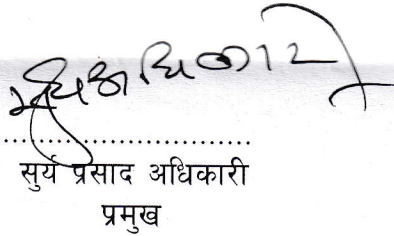 ..............................
सुर्य प्रसाद अधिकारी
प्रमुख